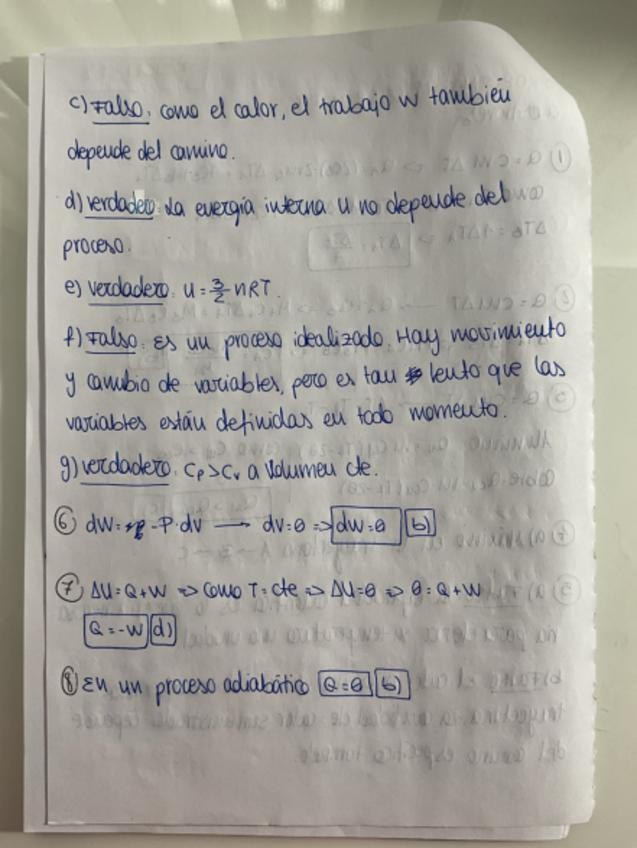 c) Falso. como el calor, el trabajo W también
depende del camino.
d) verdadero. La energía interna U no depende del
proceso.
e) verdadero. U = 3/2 nRT.
f) Falso. Es un proceso idealizado. Hay movimiento
y cambio de variables, pero es tan lento que las
variables están definidas en todo momento.
g) verdadero. Cp > Cv a volumen cte.
⑥ dW = -P·dV → dV = 0 => dW = 0 b)
⑦ ΔU = Q + W => como T = cte => ΔU = 0 => 0 = Q + W
Q = -W d)
⑧ En un proceso adiabático Q = 0 b)